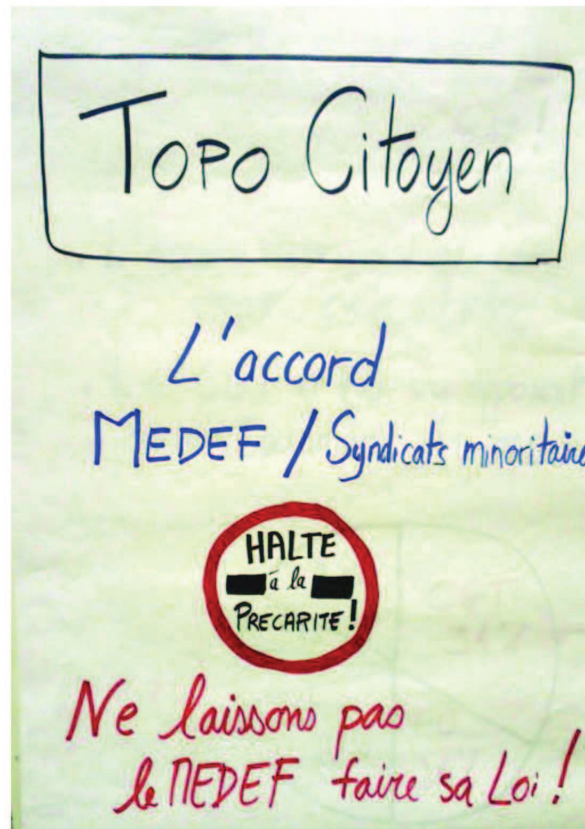 Topo Citoyen
L'accord
MEDEF / Syndicats minoritaire
HALTE
à la
PRECARITE !
Ne laissons pas
le MEDEF faire sa Loi !